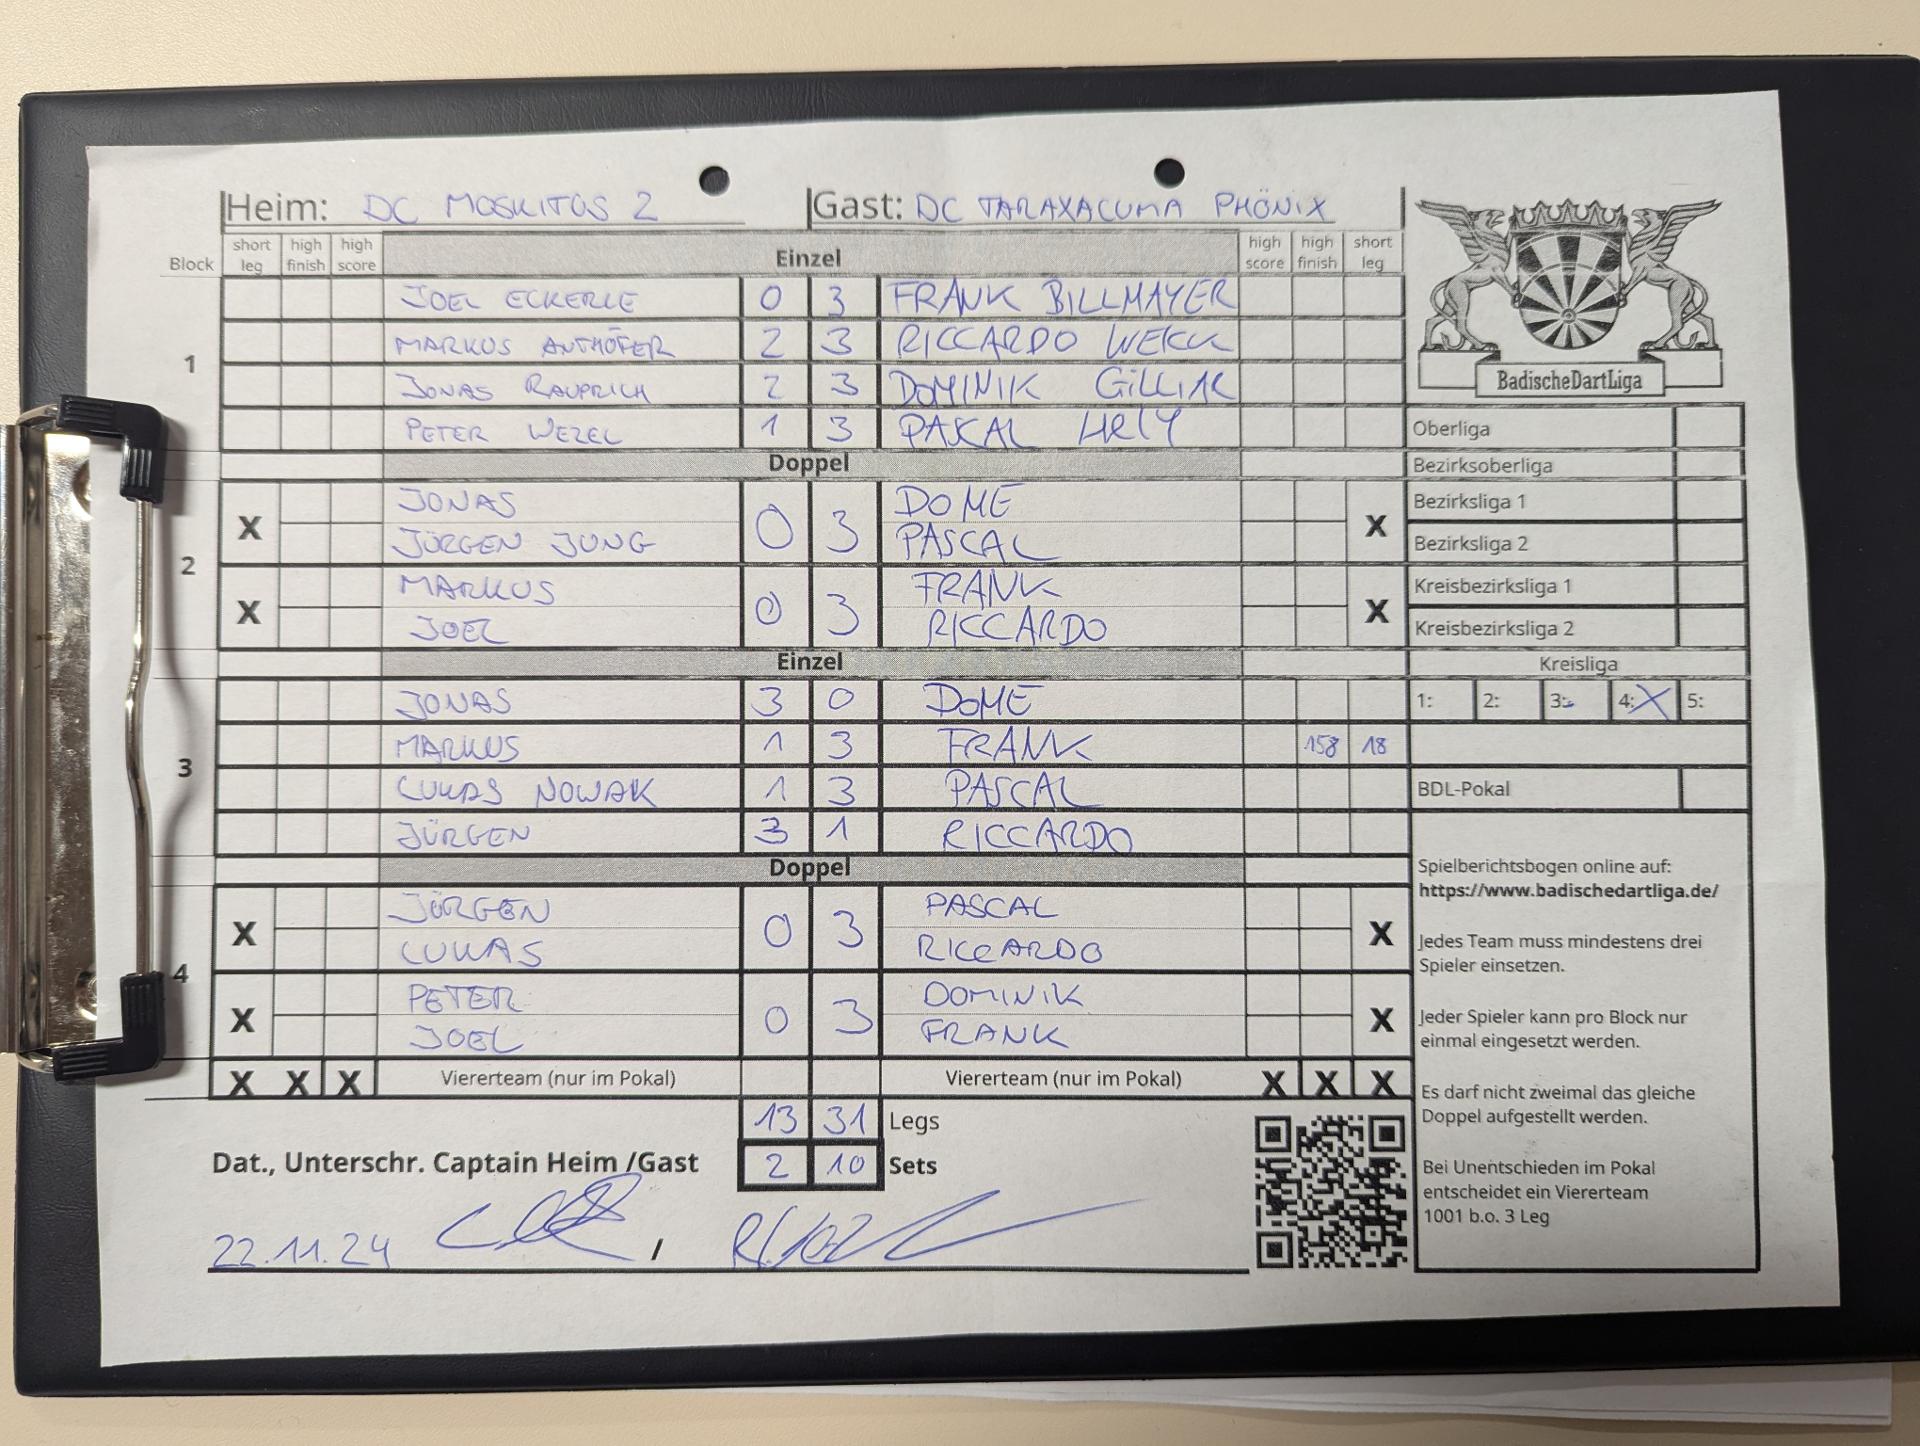 Heim: DC MOSKITOS 2 Gast: DC TARAXACUMA PHÖNIX
Block short leg high finish high score Einzel high score high finish short leg
1
JOEL ECKERLE 0 3 FRANK BILLMAYER
MARKUS ANTHÖFER 2 3 RICCARDO WEKK
JONAS RAUPRICH 2 3 DOMINIK
PETER WEZEL 1 3 PASCAL
Doppel
2
X JONAS 0 3 DOME X
JÜRGEN JUNG PASCAL
X MARKUS 0 3 FRANK X
JOEL RICCARDO
Einzel
3
JONAS 3 0 DOME
MARKUS 1 3 FRANK 158 18
LUKAS NOWAK 1 3 PASCAL
JÜRGEN 3 1 RICCARDO
Doppel
4
X JÜRGEN 0 3 PASCAL X
LUKAS RICCARDO
X PETER 0 3 DOMINIK X
JOEL FRANK
X X X Viererteam (nur im Pokal) Viererteam (nur im Pokal) X X X
13 31 Legs
Dat., Unterschr. Captain Heim /Gast 2 10 Sets
22.11.24 /
BadischeDartLiga
Oberliga
Bezirksoberliga
Bezirksliga 1
Bezirksliga 2
Kreisbezirksliga 1
Kreisbezirksliga 2
Kreisliga
1: 2: 3: 4: X 5:
BDL-Pokal
Spielberichtsbogen online auf:
https://www.badischedartliga.de/
Jedes Team muss mindestens drei
Spieler einsetzen.
Jeder Spieler kann pro Block nur
einmal eingesetzt werden.
Es darf nicht zweimal das gleiche
Doppel aufgestellt werden.
Bei Unentschieden im Pokal
entscheidet ein Viererteam
1001 b.o. 3 Leg